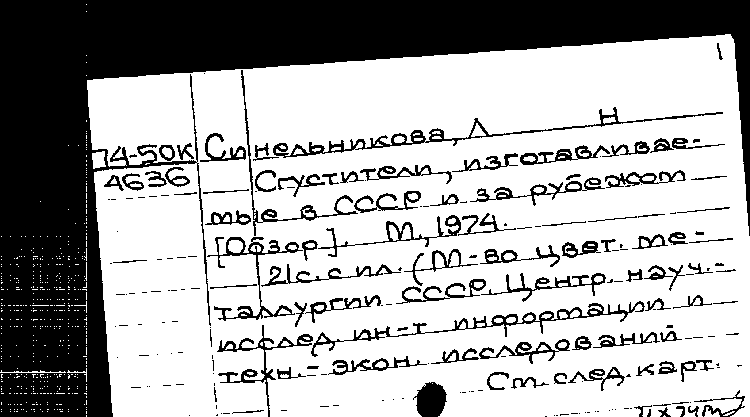 1
74-50К Синельникова, Л Н
4636 Сгустители, изготавливае-
мые в СССР и за рубежом
[Обзор]. М., 1974.
21с. с ил. (М-во цвет. ме-
таллургии СССР. Центр. науч.-
исслед. ин-т информации и
техн.- экон. исследований
См. след. карт.